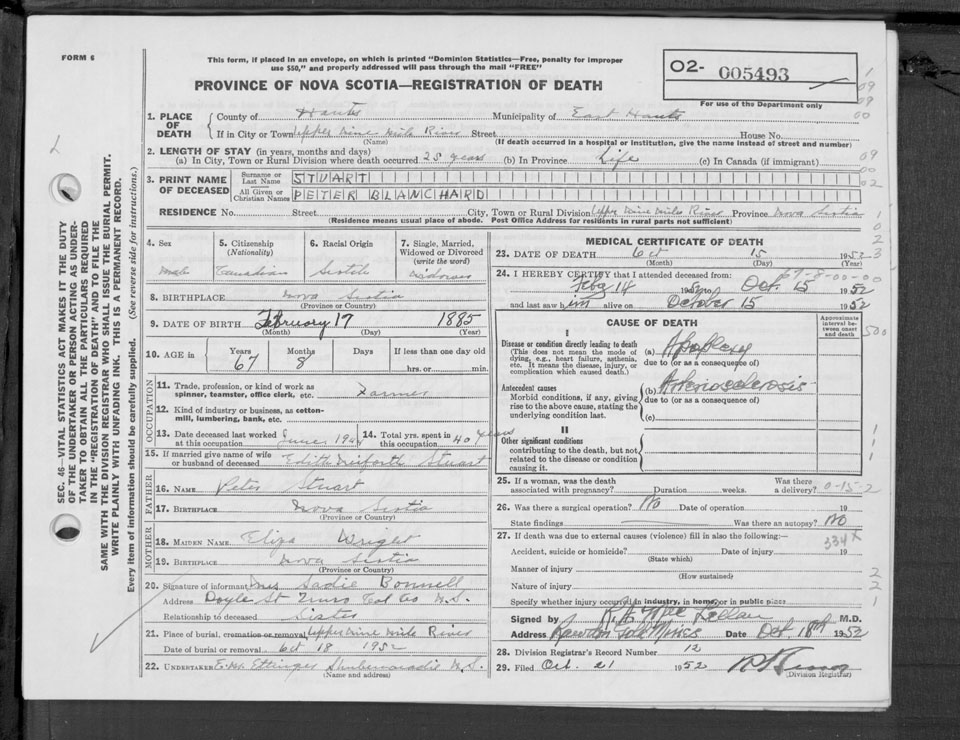 FORM 6
This form, if placed in an envelope, on which is printed "Dominion Statistics—Free, penalty for improper
use $50," and properly addressed will pass through the mail "FREE"
PROVINCE OF NOVA SCOTIA—REGISTRATION OF DEATH
O2- 005493
For use of the Department only
1. PLACE OF DEATH
County of Hants Municipality of East Hants
If in City or Town Upper Nine Mile River Street House No.
(Name) (If death occurred in a hospital or institution, give the name instead of street and number)
2. LENGTH OF STAY (in years, months and days)
(a) In City, Town or Rural Division where death occurred 25 years (b) In Province Life (c) In Canada (if immigrant)
3. PRINT NAME OF DECEASED
Surname or Last Name STUART
All Given or Christian Names PETER BLANCHARD
RESIDENCE No. Street City, Town or Rural Division Upper Nine Mile River Province Nova Scotia
(Residence means usual place of abode. Post Office Address for residents in rural parts not sufficient)
4. Sex Male
5. Citizenship (Nationality) Canadian
6. Racial Origin Scotch
7. Single, Married, Widowed or Divorced (write the word) Widower
8. BIRTHPLACE Nova Scotia
(Province or Country)
9. DATE OF BIRTH February 17 1885
(Month) (Day) (Year)
10. AGE in Years 67 Months 8 Days If less than one day old hrs. or min.
OCCUPATION
11. Trade, profession, or kind of work as spinner, teamster, office clerk, etc. Farmer
12. Kind of industry or business, as cotton-mill, lumbering, bank, etc.
13. Date deceased last worked at this occupation June 194
14. Total yrs. spent in this occupation 40 years
15. If married give name of wife or husband of deceased Edith Stuart
FATHER
16. NAME Peter Stuart
17. BIRTHPLACE Nova Scotia
(Province or Country)
MOTHER
18. MAIDEN NAME Eliza Wright
19. BIRTHPLACE Nova Scotia
(Province or Country)
20. Signature of informant Mrs Sadie Bonnell
Address Doyle St Truro Col Co N.S.
Relationship to deceased Sister
21. Place of burial, cremation or removal Upper Nine Mile River
Date of burial or removal Oct 18 1952
22. UNDERTAKER E.W. Ettinger Shubenacadie N.S.
(Name and address)
MEDICAL CERTIFICATE OF DEATH
23. DATE OF DEATH Oct 15 1952
(Month) (Day) (Year)
24. I HEREBY CERTIFY that I attended deceased from:
Feby 14 1952 to Oct. 15 1952
and last saw him alive on October 15 1952
CAUSE OF DEATH
Approximate interval between onset and death
I
Disease or condition directly leading to death
(This does not mean the mode of dying, e.g., heart failure, asthenia, etc. It means the disease, injury, or complication which caused death.)
(a) Apoplexy
due to (or as a consequence of)
Antecedent causes
Morbid conditions, if any, giving rise to the above cause, stating the underlying condition last.
(b) Arteriosclerosis
due to (or as a consequence of)
(c)
II
Other significant conditions contributing to the death, but not related to the disease or condition causing it.
25. If a woman, was the death associated with pregnancy? Duration weeks. Was there a delivery? 0-15-2
26. Was there a surgical operation? No Date of operation 19
State findings Was there an autopsy? No
27. If death was due to external causes (violence) fill in also the following:—
334X
Accident, suicide or homicide? Date of injury 19
(State which)
Manner of injury
(How sustained)
Nature of injury
Specify whether injury occurred in industry, in home, or in public place
Signed by M.D.
Address Rawdon Gold Mines Date Oct 18th 1952
28. Division Registrar's Record Number 12
29. Filed Oct. 21 1952
(Division Registrar)
SEC. 46—VITAL STATISTICS ACT MAKES IT THE DUTY
OF THE UNDERTAKER OR PERSON ACTING AS UNDER-
TAKER TO OBTAIN ALL THE PARTICULARS REQUIRED
IN THE "REGISTRATION OF DEATH" AND TO FILE THE
SAME WITH THE DIVISION REGISTRAR WHO SHALL ISSUE THE BURIAL PERMIT.
WRITE PLAINLY WITH UNFADING INK. THIS IS A PERMANENT RECORD.
Every item of information should be carefully supplied. (See reverse side for instructions.)